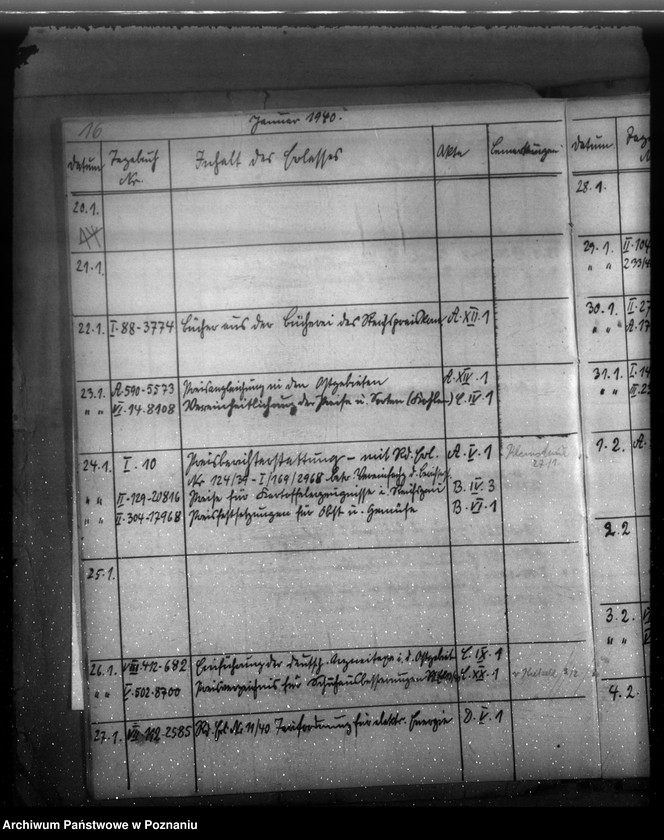 16
Januar 1940.
Datum Tagebuch Nr. Inhalt des Erlasses Akte Bemerkungen
20.1.
21.1.
22.1. I-88-3774 Bücher aus der Bücherei des Reichspreiskom A.XII.1
23.1. A-590-5573 Preisangleichung in den Ostgebieten A.XIV.1
" " VI-14-8108 Vereinheitlichung der Preise u. Sorten (Kohlen) C.IV.1
24.1. I.10 Preisberichterstattung - mit Rd. Erl. A.V.1
Nr. 124/39 - I/169/2968 betr.
" " II-129-20816 Preise für Kartoffelerzeugnisse B.IV.3
" " II-304-17968 Preisfestsetzungen für Obst u. Gemüse B.VI.1
27/1.
25.1.
26.1. VIII-412-682 Einführung der deutsch. Arzneitaxe i. d. Ostgebiet C.IX.1
" " V-502-8700 Preisverzeichnis für Schuhausbesserungen C.XX.1
27.1. VII-112-2585 Rd. Erl. Nr. 11/40 Tarifordnung für elektr. Energie D.V.1
Datum
28.1.
29.1. II-104
" " 233/4
30.1. II-27
" " A-17
31.1. I-14
" "
1.2. A.
2.2
3.2. VI
" "
4.2.
Archiwum Państwowe w Poznaniu